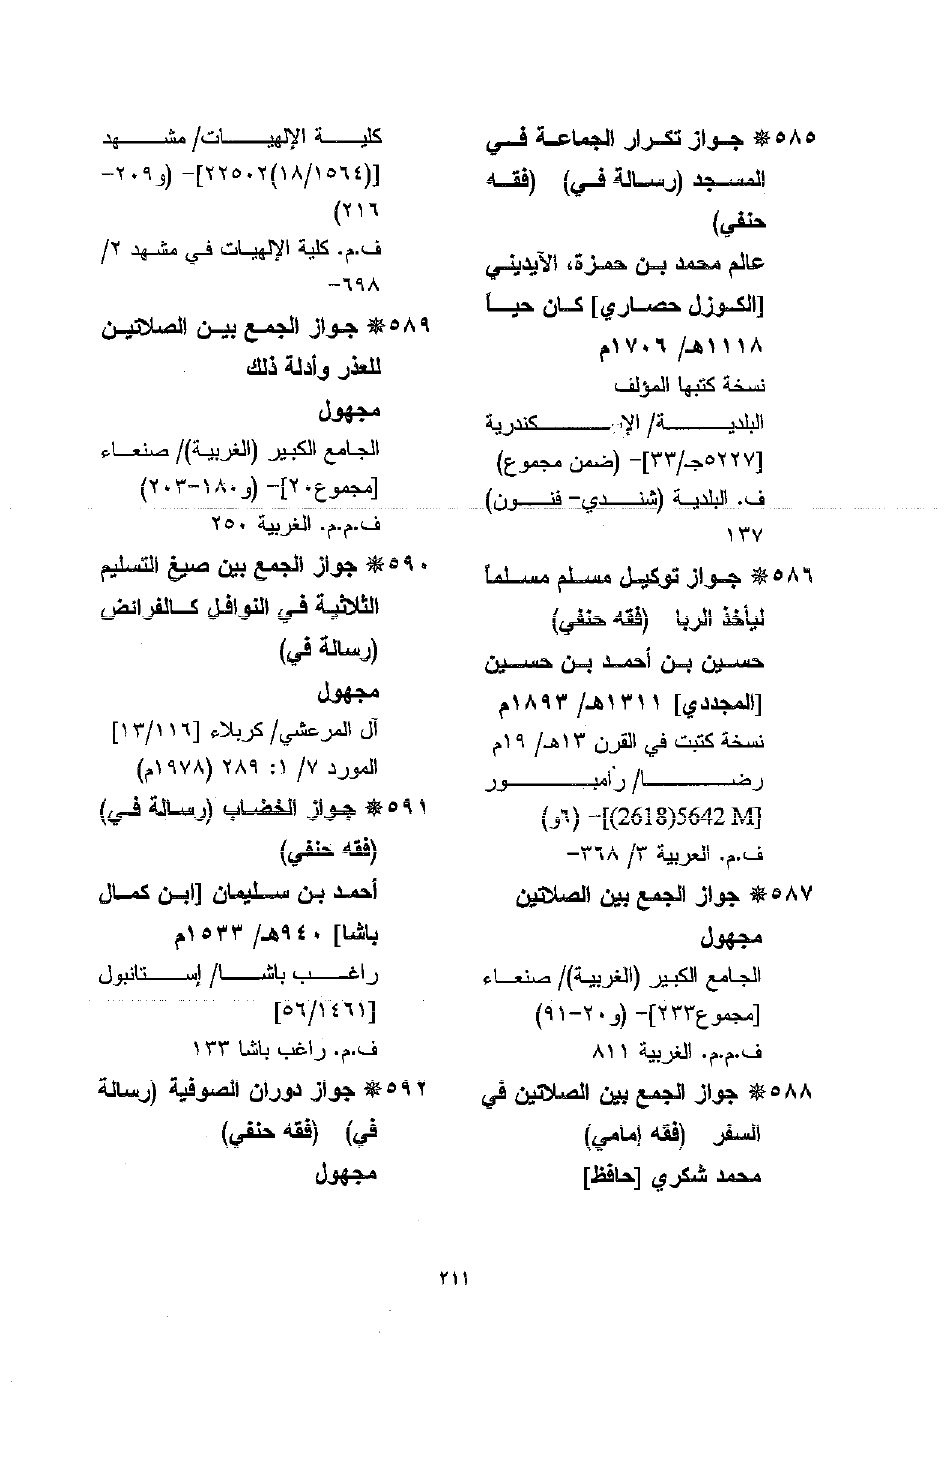 ٥٨٥* جـواز تكـرار الجماعـة فـي
المسـجد (رسـالة فـي) (فقـه
حنفي)
عالم محمد بـن حمـزة، الآيدينـي
[الكـوزل حصـاري] كـان حيـاً
١١١٨هـ/ ١٧٠٦م
نسخة كتبها المؤلف
البلديـــة/ الإســـكندرية
[٥٢٢٧جـ/٣٣]- (ضمن مجموع)
ف. البلديـة (شـندي- فنـون)
١٣٧
٥٨٦* جـواز توكيـل مسـلم مسـلماً
ليأخذ الربا (فقه حنفي)
حسـين بـن أحمـد بـن حسـين
[المجددي] ١٣١١هـ/ ١٨٩٣م
نسخة كتبت في القرن ١٣هـ/ ١٩م
رضـــا/ رامبـــور
[(2618)5642 M]- (٦و)
ف.م. العربية ٣/ ٣٦٨-
٥٨٧* جواز الجمع بين الصلاتين
مجهول
الجامع الكبير (الغربية)/ صنعـاء
[مجموع٢٣٣]- (و٢٠-٩١)
ف.م.م. الغربية ٨١١
٥٨٨* جواز الجمع بين الصلاتين في
السفر (فقه إمامي)
محمد شكري [حافظ]
كليـــة الإلهيـــات/ مشـــهد
[(١٨/١٥٦٤)٢٢٥٠٢]- (و٢٠٩-
٢١٦)
ف.م. كلية الإلهيـات فـي مشـهد ٢/
٦٩٨-
٥٨٩* جـواز الجمـع بيـن الصلاتيـن
للعذر وأدلة ذلك
مجهول
الجـامع الكبـير (الغربيـة)/ صنعـاء
[مجموع٢٠]- (و١٨٠-٢٠٣)
ف.م.م. الغربية ٢٥٠
٥٩٠* جواز الجمع بين صيغ التسليم
الثلاثيـة فـي النوافل كـالفرائض
(رسالة في)
مجهول
آل المرعشي/ كربلاء [١٣/١١٦]
المورد ٧/ ١: ٢٨٩ (١٩٧٨م)
٥٩١* جـواز الخضـاب (رسـالة فـي)
(فقه حنفي)
أحمـد بـن سـليمان [ابـن كمـال
باشا] ٩٤٠هـ/ ١٥٣٣م
راغـــب باشـــا/ إســـتانبول
[٥٦/١٤٦١]
ف.م. راغب باشا ١٣٣
٥٩٢* جواز دوران الصوفية (رسالة
في) (فقه حنفي)
مجهول
٢١١